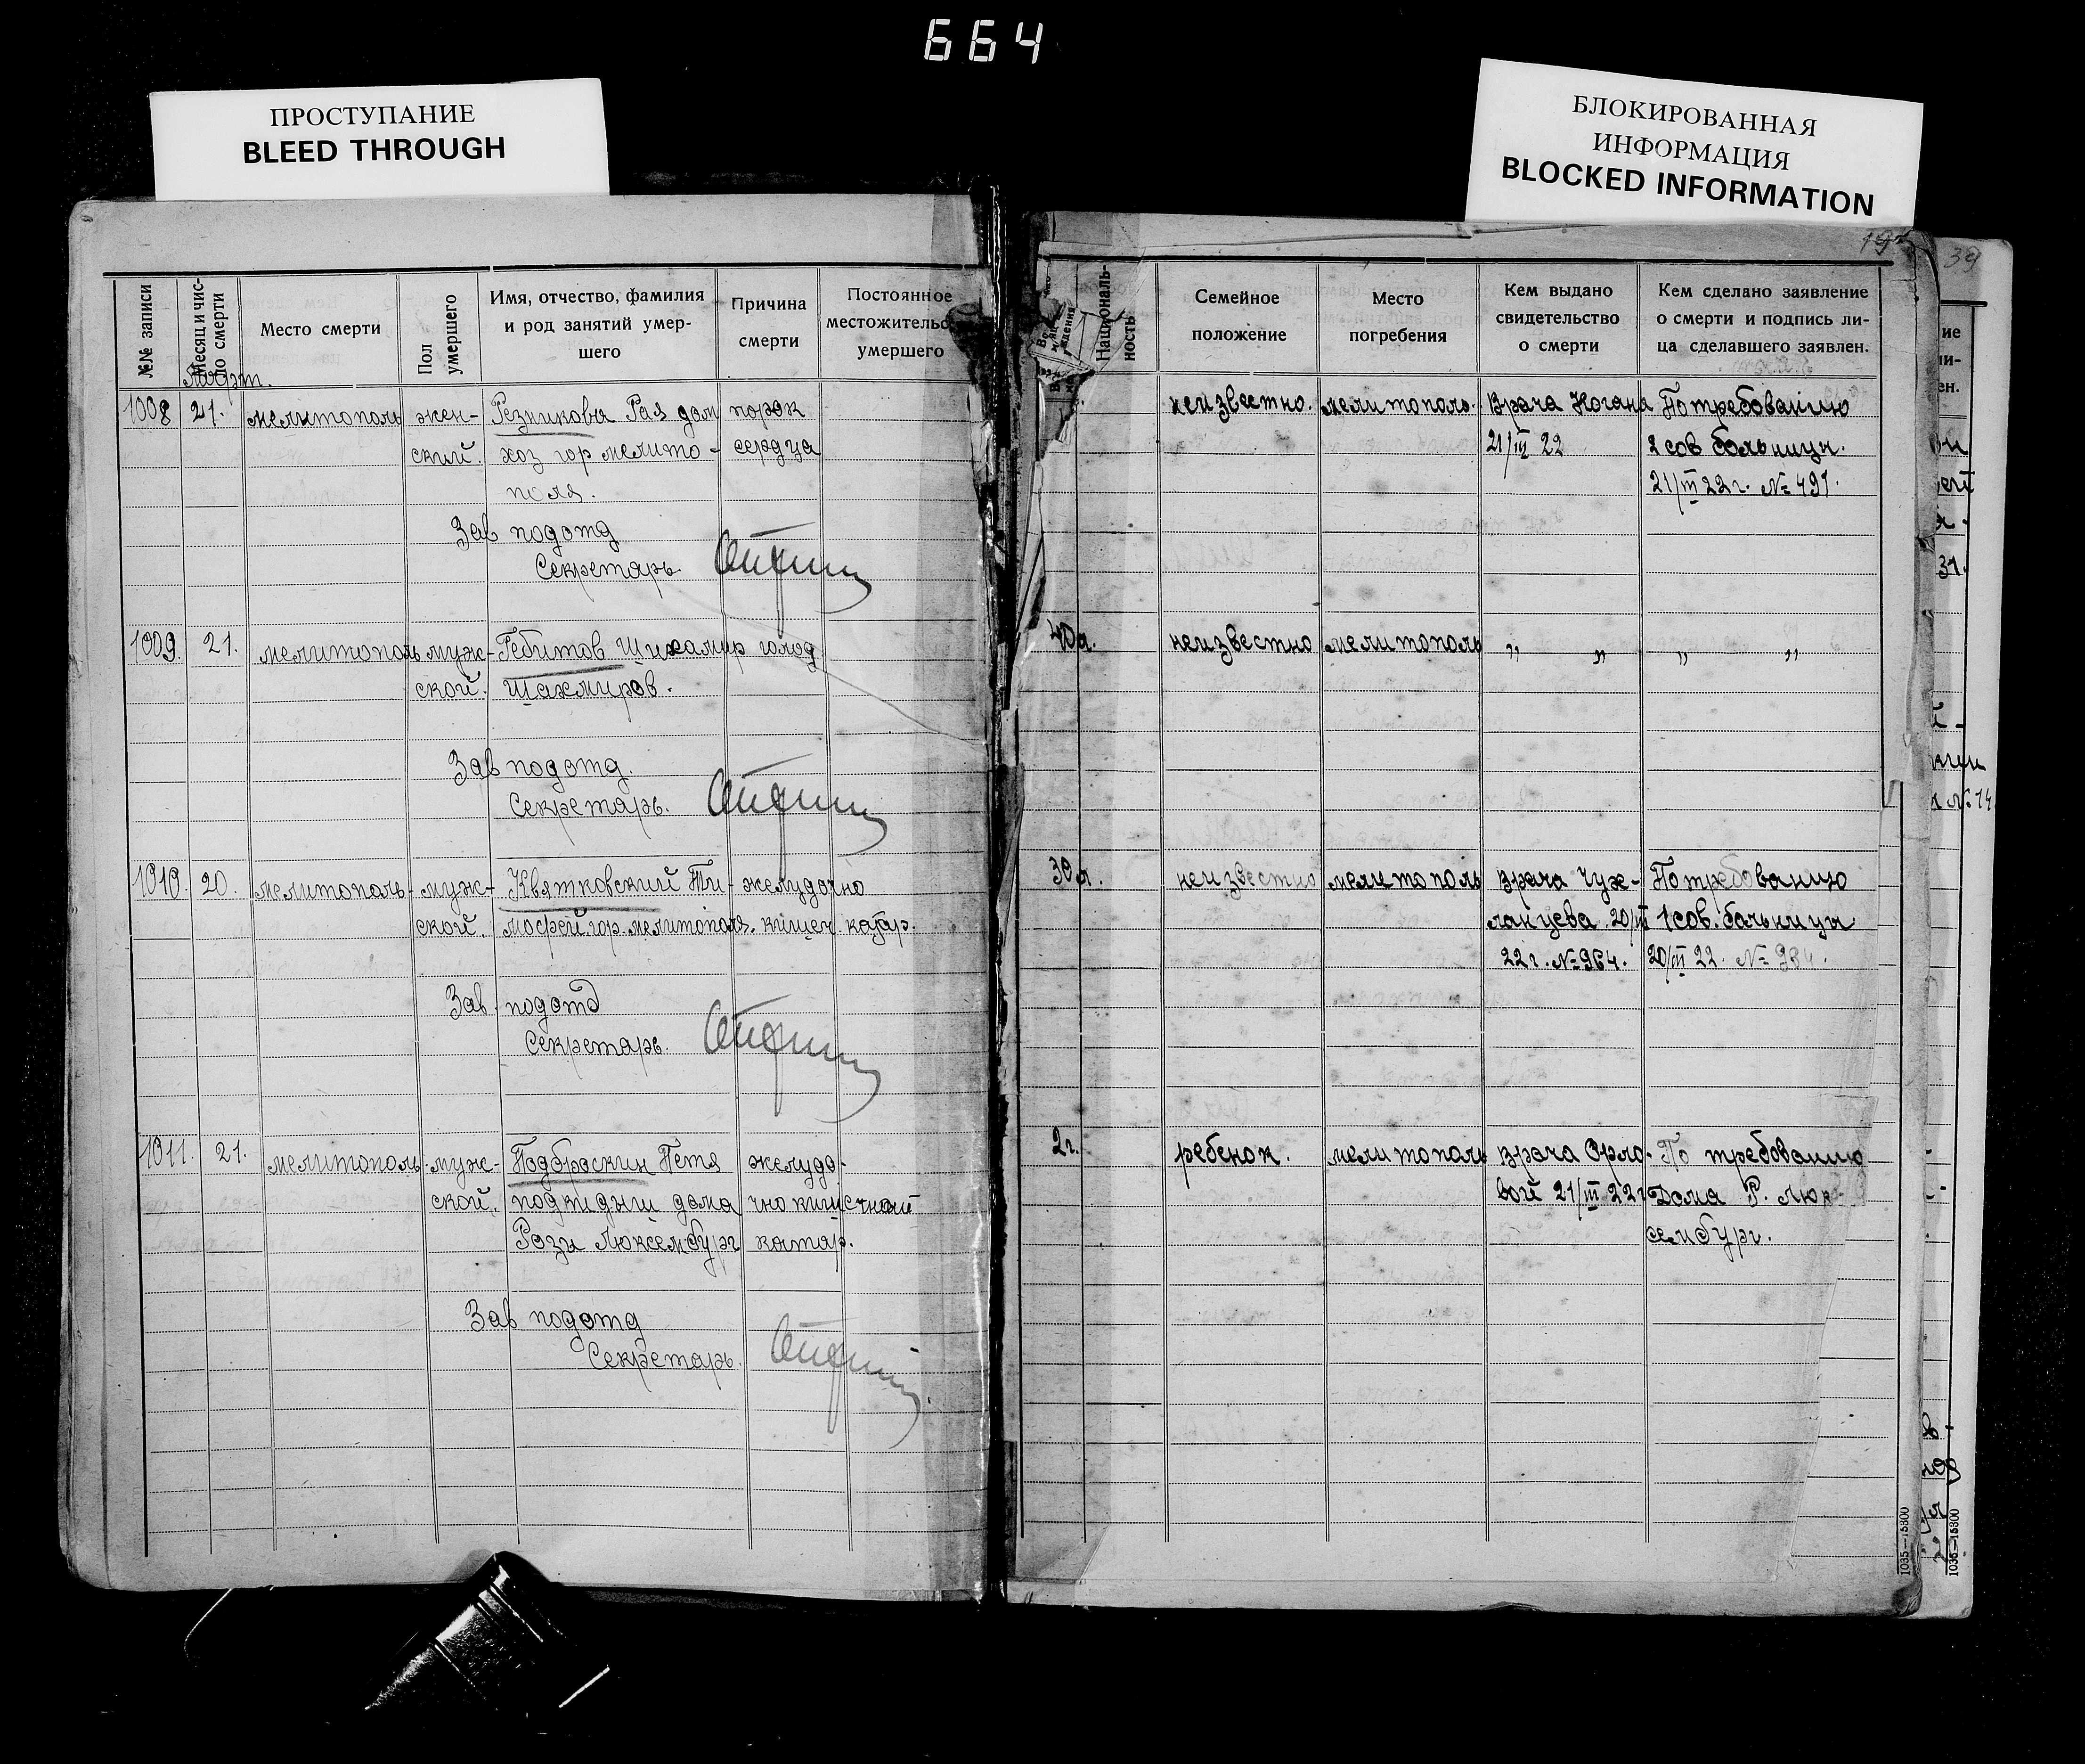 664
ПРОСТУПАНИЕ
BLEED THROUGH
БЛОКИРОВАННАЯ
ИНФОРМАЦИЯ
BLOCKED INFORMATION
39
№№ записи
Месяц и чис-
ло смерти
Место смерти
Пол
умершего
Имя, отчество, фамилия
и род занятий умер-
шего
Причина
смерти
Постоянное
местожительс
умершего
Националь-
ность
Семейное
положение
Место
погребения
Кем выдано
свидетельство
о смерти
Кем сделано заявление
о смерти и подпись ли-
ца сделавшего заявлен.
Март.
1008 21. мелитополь жен- Резникова Рая дом порок неизвестно. мелитополь. Врача Когана По требованию
ский. хоз гор мелито- сердца 21/III 22 2 сов больницы.
поля. 21/III 22 г. № 497.
Зав подотд
Секретарь.
1009. 21. мелитополь муж- Гебитов Шихамир голод 40 л. неизвестно мелитополь „ „ „ „
ской. Шахмиров.
Зав подотд.
Секретарь.
1010. 20. мелитополь муж- Квятковский Ти- желудочно 30 л. неизвестно мелитополь врача Чуж- По требованию
ской. мофей гор. мелитополя. кишеч. катар. ланцева. 20/III 1 сов. больницы
22 г. № 964. 20/III 22. № 964.
Зав. подотд
Секретарь.
1011. 21. мелитополь. муж- Подброскин Петя желудо- 2 г. ребенок. мелитополь врача Орло- По требованию
ской. подкидыш дома чно кишечный вой 21/III 22 г Дома Р. Люк-
Розы Люксембург катар. сембург.
Зав подотд
Секретарь.
1035—15300
1035—15300